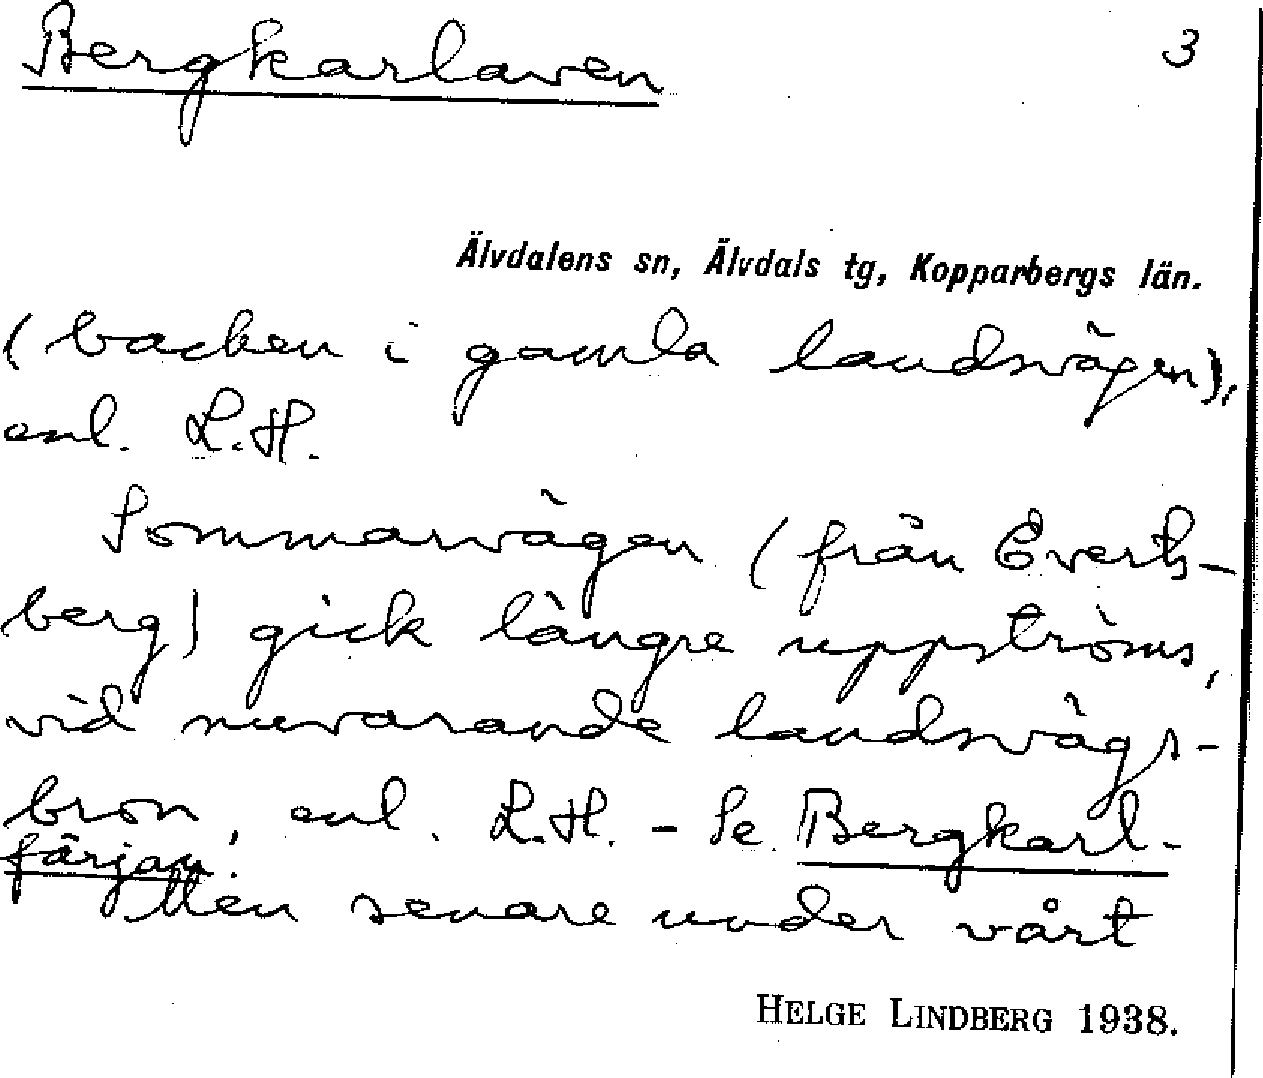 Bergkarlaven
3
Älvdalens sn, Älvdals tg, Kopparbergs län.
(backen i gamla landsvägen),
enl. L.H.
Sommarvägen (från Everts-
berg) gick längre uppströms,
vid nuvarande landsvägs-
bron, enl. L.H. - Se Bergkarl-
färjan!
Men senare under vårt
HELGE LINDBERG 1938.